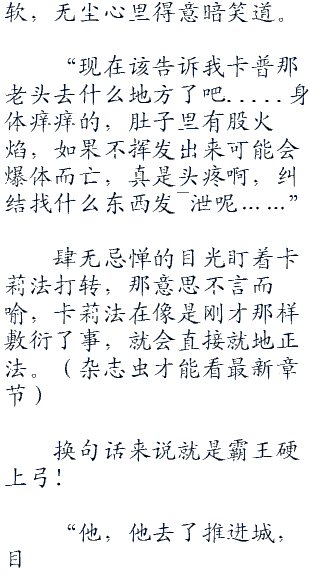 软，无尘心里得意暗笑道。
“现在该告诉我卡普那
老头去什么地方了吧.....身
体痒痒的，肚子里有股火
焰，如果不挥发出来可能会
爆体而亡，真是头疼啊，纠
结找什么东西发¯泄呢……”
肆无忌惮的目光盯着卡
莉法打转，那意思不言而
喻，卡莉法在像是刚才那样
敷衍了事，就会直接就地正
法。（杂志虫才能看最新章
节）
换句话来说就是霸王硬
上弓！
“他，他去了推进城，
目